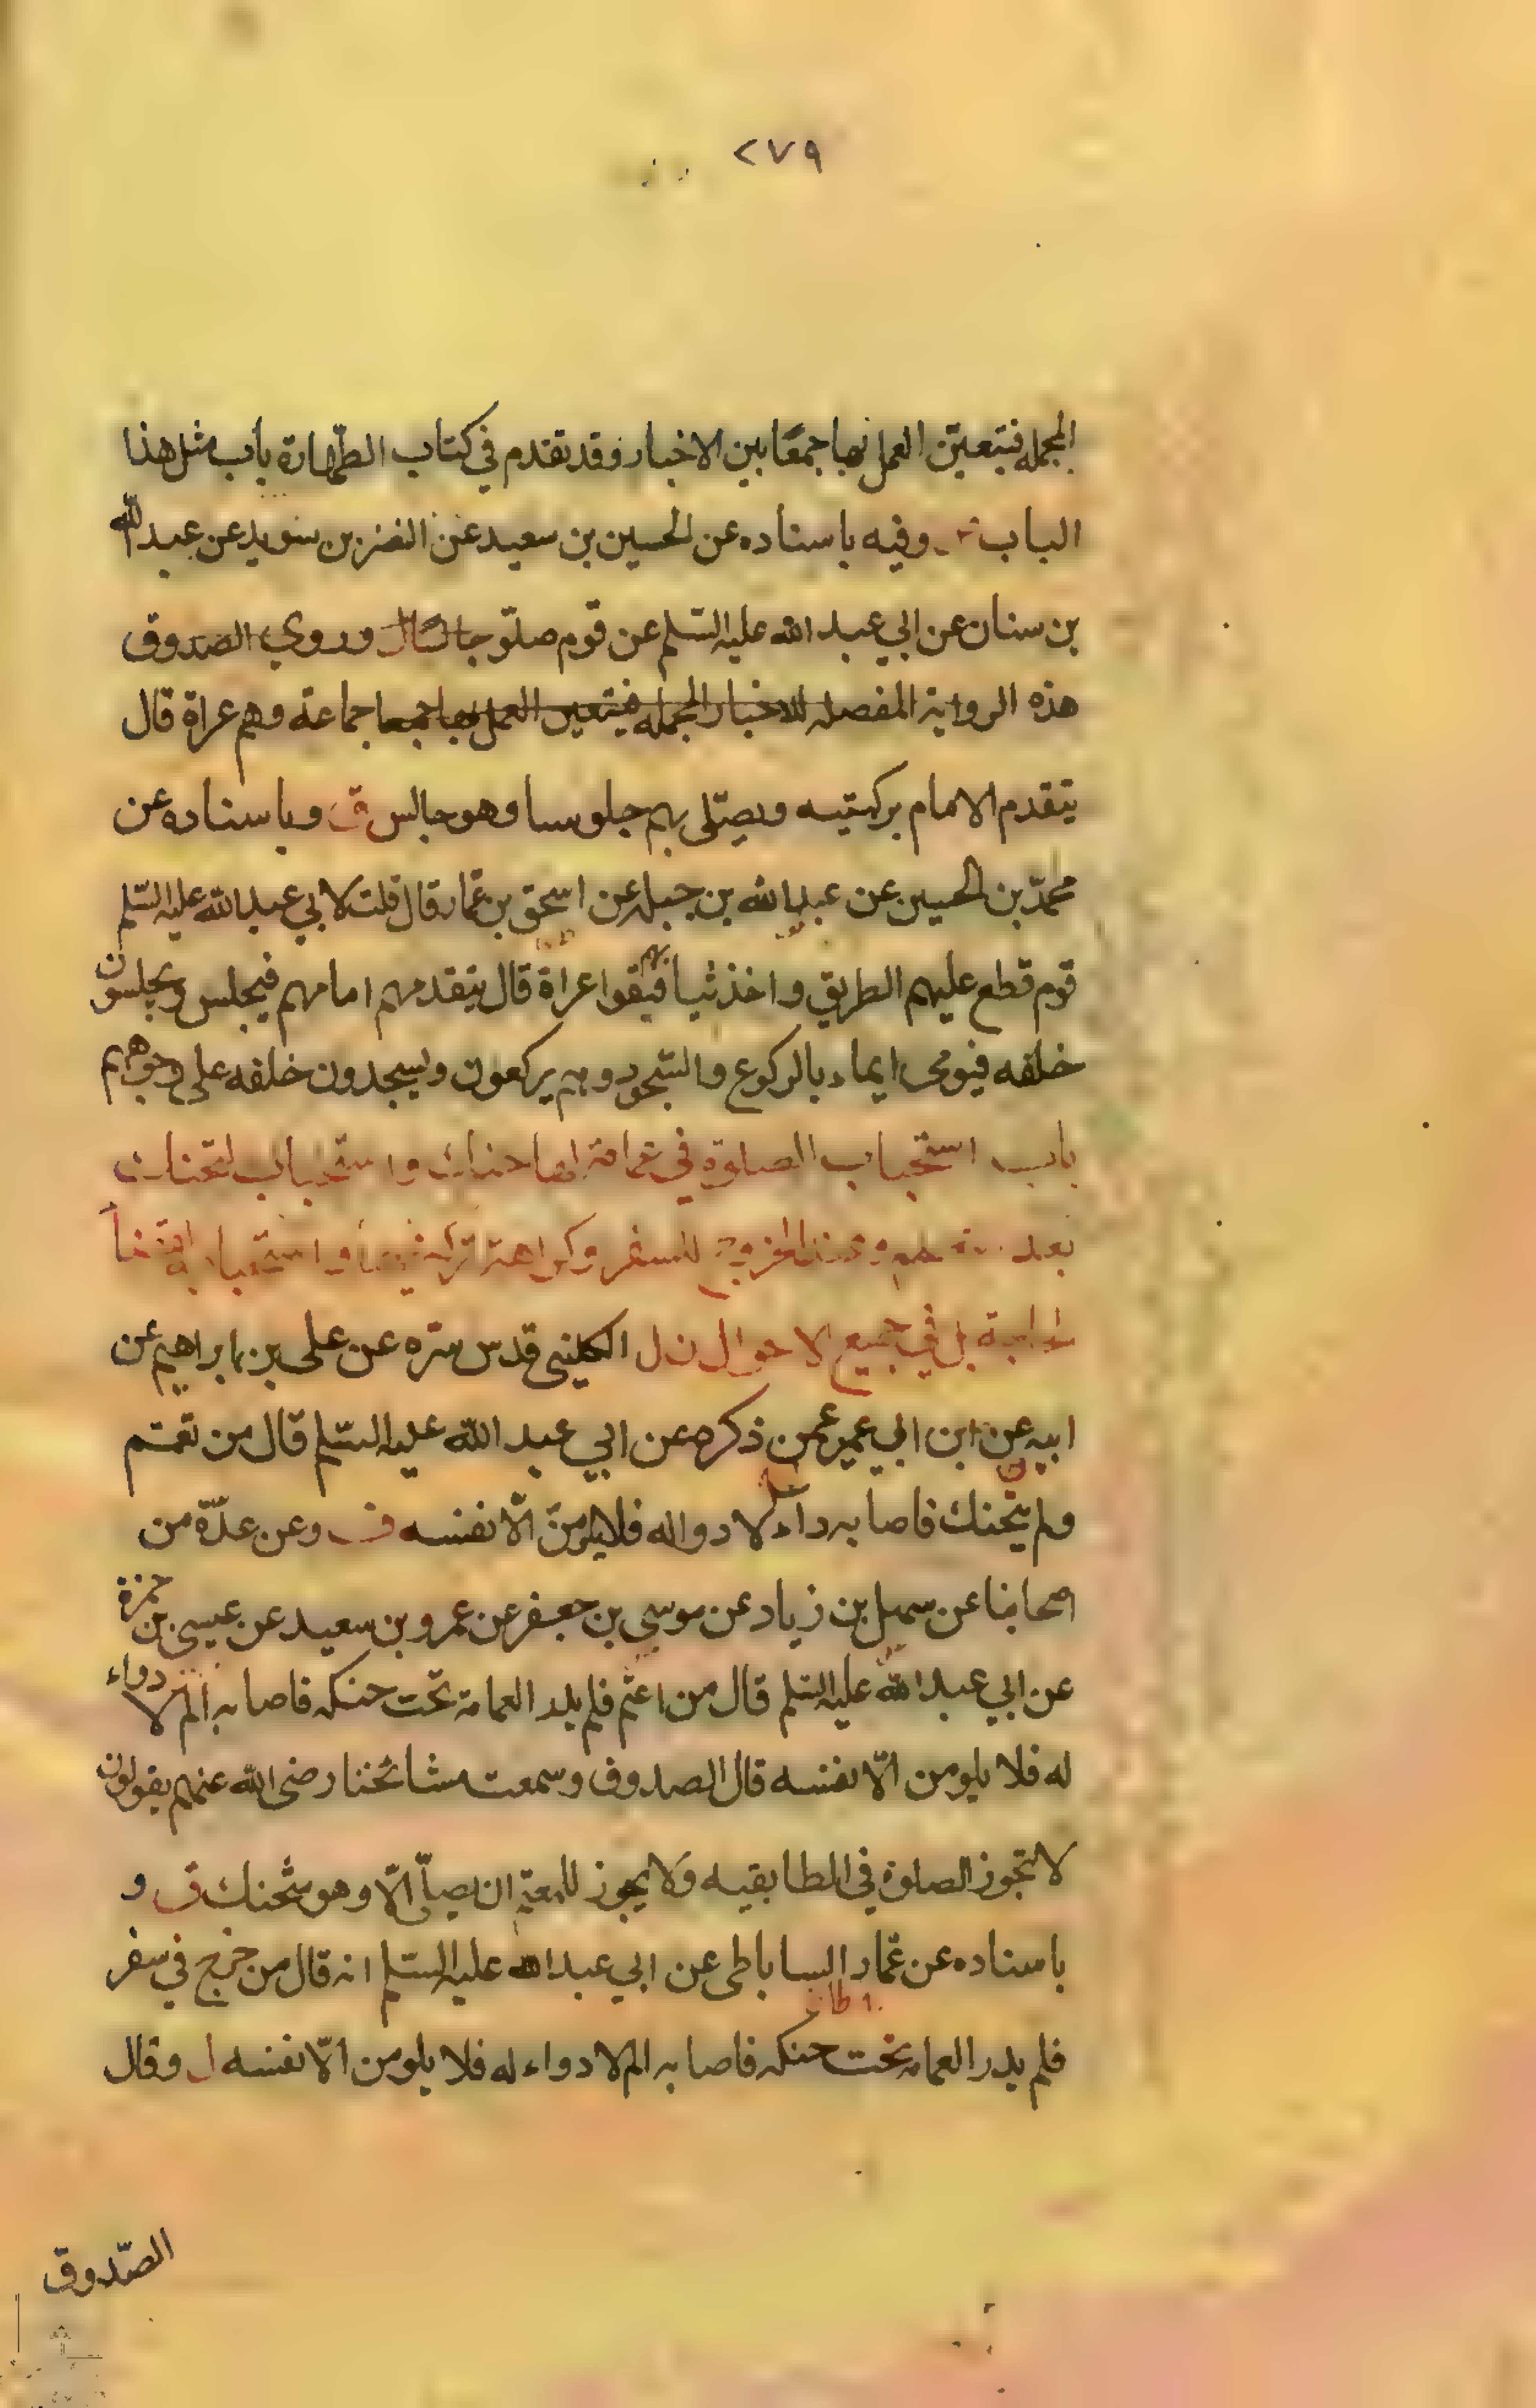 ٢٧٩
المجمله فيتعيّن العمل بها جمعًا بين الاخبار وقد تقدم في كتاب الطّهارة باب مثل هذا
الباب وفيه باسناده عن الحسين بن سعيد عن النضر بن سويد عن عبد الله
بن سنان عن ابي عبد الله عليه السّلم عن قوم صلّو جالسًا وروي الصدوق
هذه الرواية المفصله للاخبار المجمله فيتعين العمل بها جمعا جماعة وهم عراة قال
يتقدم الامام بركبتيه ويصلّى بهم جلوسا وهو جالس ق وباسناده عن
محمّد بن الحسين عن عبد الله بن جبله عن اسحق بن عمّار قال قلت لابي عبد الله عليه السّلم
قوم قطع عليهم الطريق واخذ ثيابهم فبقوا عراة قال يتقدمهم امامهم فيجلس ويجلسون
خلفه فيومى ايماء بالركوع والسّجود وهم يركعون ويسجدون خلفه على وجوههم
باب استحباب الصلوة في عمامة لها حنك واستحباب التحنك
بعد وعند الخروج للسفر وكراهة تركه فيها واستحباب
بل في جميع الاحوال الكلينى قدس سرّه عن على بن ابراهيم عن
ابيه عن ابن ابي عمير عمن ذكره عن ابي عبد الله عليه السّلم قال من تعمّم
ولم يتحنك فاصابه داء لا دوا له فلا يلومنّ الّا نفسه ف وعن عدّة من
اصحابنا عن سهل بن زياد عن موسى بن جعفر عن عمرو بن سعيد عن عيسى بن حمزة
عن ابي عبد الله عليه السّلم قال من اعتّم فلم يدر العمامة تحت حنكه فاصابه الم لا دواء
له فلا يلومن الّا نفسه قال الصدوق وسمعت مشائخنا رضى الله عنهم يقولون
لا تجوز الصلوة في الطابقيه ولا يجوز للمعتم ان يصلّى الّا وهو متحنك ف و
باسناده عن عمّار الساباطى عن ابي عبد الله عليه السّلم انه قال من خرج في سفر
فلم يدر العمامه تحت حنكه فاصابه الم لا دواء له فلا يلومن الّا نفسه ل وقال
الصّدوق